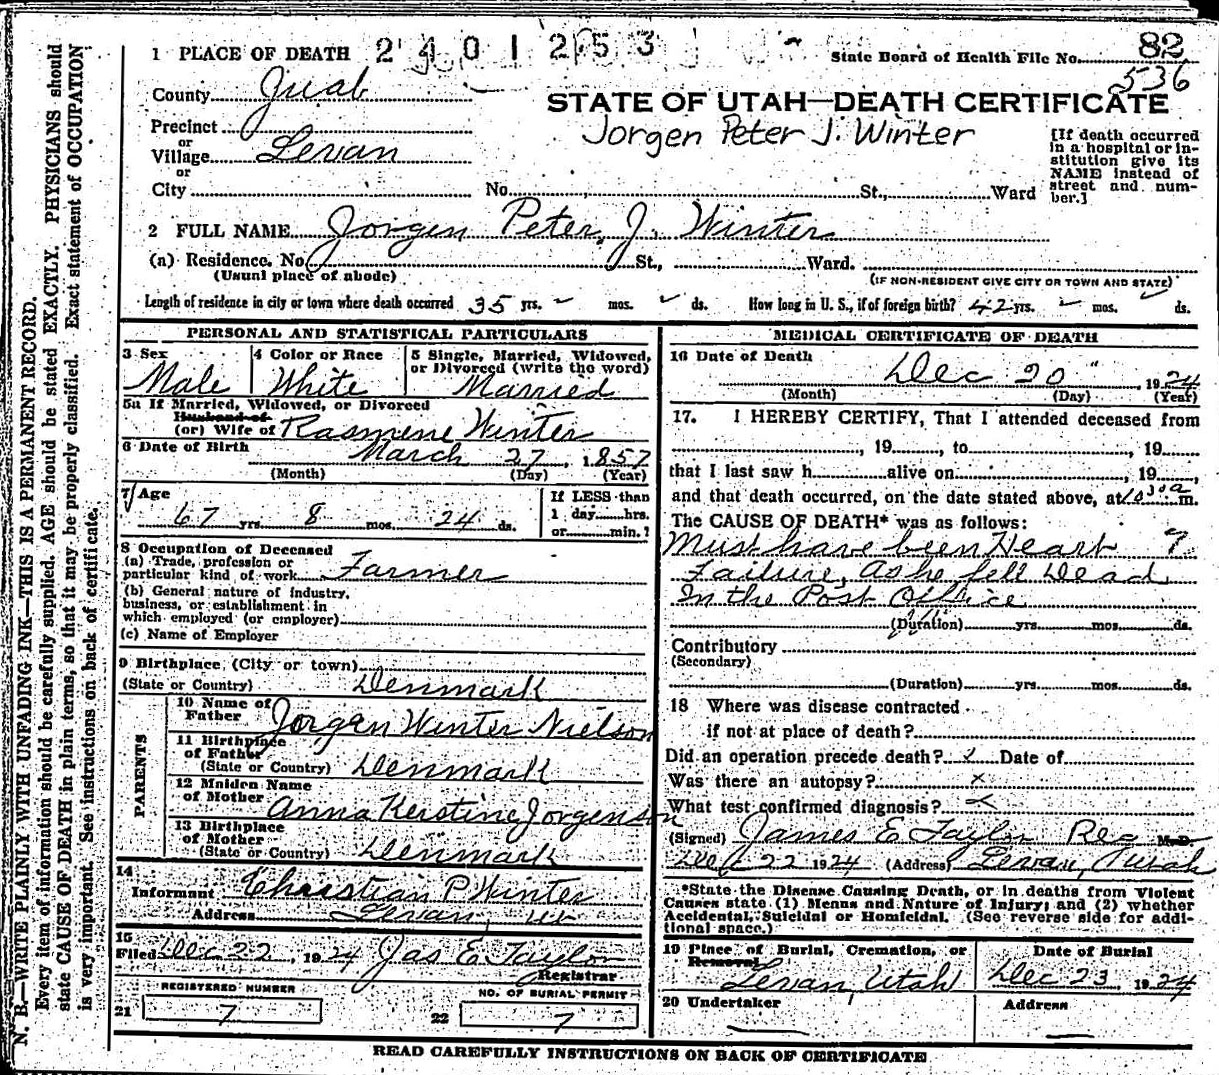 1 PLACE OF DEATH 2401253
State Board of Health File No. 82
536
County Juab
STATE OF UTAH—DEATH CERTIFICATE
Precinct
or
Village Levan
or
City No. St., Ward
Jorgen Peter J. Winter
[If death occurred
in a hospital or in-
stitution give its
NAME instead of
street and num-
ber.]
2 FULL NAME Jorgen Peter J. Winter
(a) Residence. No. St., Ward.
(Usual place of abode) (IF NON-RESIDENT GIVE CITY OR TOWN AND STATE)
Length of residence in city or town where death occurred 35 yrs. mos. ds. How long in U. S., if of foreign birth? 42 yrs. mos. ds.
PERSONAL AND STATISTICAL PARTICULARS
3 Sex
Male
4 Color or Race
White
5 Single, Married, Widowed,
or Divorced (write the word)
Married
5a If Married, Widowed, or Divorced
Husband of
(or) Wife of Rasmene Winter
6 Date of Birth March 27, 1857
(Month) (Day) (Year)
7 Age
67 yrs. 8 mos. 24 ds.
If LESS than
1 day hrs.
or min.?
8 Occupation of Deceased
(a) Trade, profession or
particular kind of work Farmer
(b) General nature of industry,
business, or establishment in
which employed (or employer)
(c) Name of Employer
9 Birthplace (City or town)
(State or Country) Denmark
PARENTS
10 Name of
Father Jorgen Winter Nielson
11 Birthplace
of Father
(State or Country) Denmark
12 Maiden Name
of Mother Anna Kerstine Jorgenson
13 Birthplace
of Mother
(State or Country) Denmark
14
Informant Christian P Winter
Address Levan, Ut
15
Filed Dec 22, 1924 Jas E Taylor
Registrar
REGISTERED NUMBER
21 7
NO. OF BURIAL PERMIT
22 7
MEDICAL CERTIFICATE OF DEATH
16 Date of Death Dec 20 1924
(Month) (Day) (Year)
17. I HEREBY CERTIFY, That I attended deceased from
, 19 , to , 19
that I last saw h alive on , 19 ,
and that death occurred, on the date stated above, at 10 30 a m.
The CAUSE OF DEATH* was as follows:
Must have been Heart ?
Failure, as he fell Dead
In the Post Office
(Duration) yrs. mos. ds.
Contributory
(Secondary)
(Duration) yrs. mos. ds.
18 Where was disease contracted
if not at place of death?
Did an operation precede death? Date of
Was there an autopsy? x
What test confirmed diagnosis?
(Signed) James E Taylor Reg M.D.
Dec 22 1924 (Address) Levan, Utah
*State the Disease Causing Death, or in deaths from Violent
Causes state (1) Means and Nature of Injury; and (2) whether
Accidental, Suicidal or Homicidal. (See reverse side for addi-
tional space.)
19 Place of Burial, Cremation, or
Removal
Levan, Utah
Date of Burial
Dec 23, 1924
20 Undertaker
Address
READ CAREFULLY INSTRUCTIONS ON BACK OF CERTIFICATE
N. B.—WRITE PLAINLY WITH UNFADING INK—THIS IS A PERMANENT RECORD.
Every item of information should be carefully supplied. AGE should be stated EXACTLY. PHYSICIANS should
state CAUSE OF DEATH in plain terms, so that it may be properly classified. Exact statement of OCCUPATION
is very important. See instructions on back of certificate.